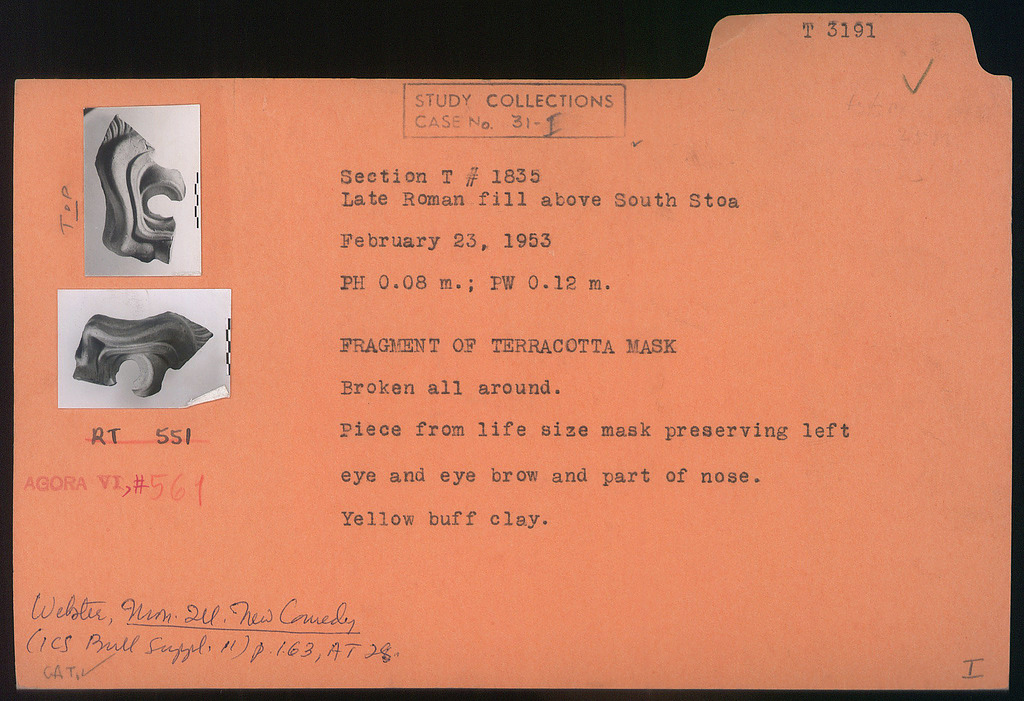 T 3191
STUDY COLLECTIONS
CASE No. 31-I
TOP
Section T # 1835
Late Roman fill above South Stoa
February 23, 1953
PH 0.08 m.; PW 0.12 m.
FRAGMENT OF TERRACOTTA MASK
Broken all around.
Piece from life size mask preserving left
eye and eye brow and part of nose.
Yellow buff clay.
RT 551
AGORA VI, #561
Webster, Mon. Ill. New Comedy
(ICS Bull Suppl. 11) p. 163, AT 28.
CAT.
I